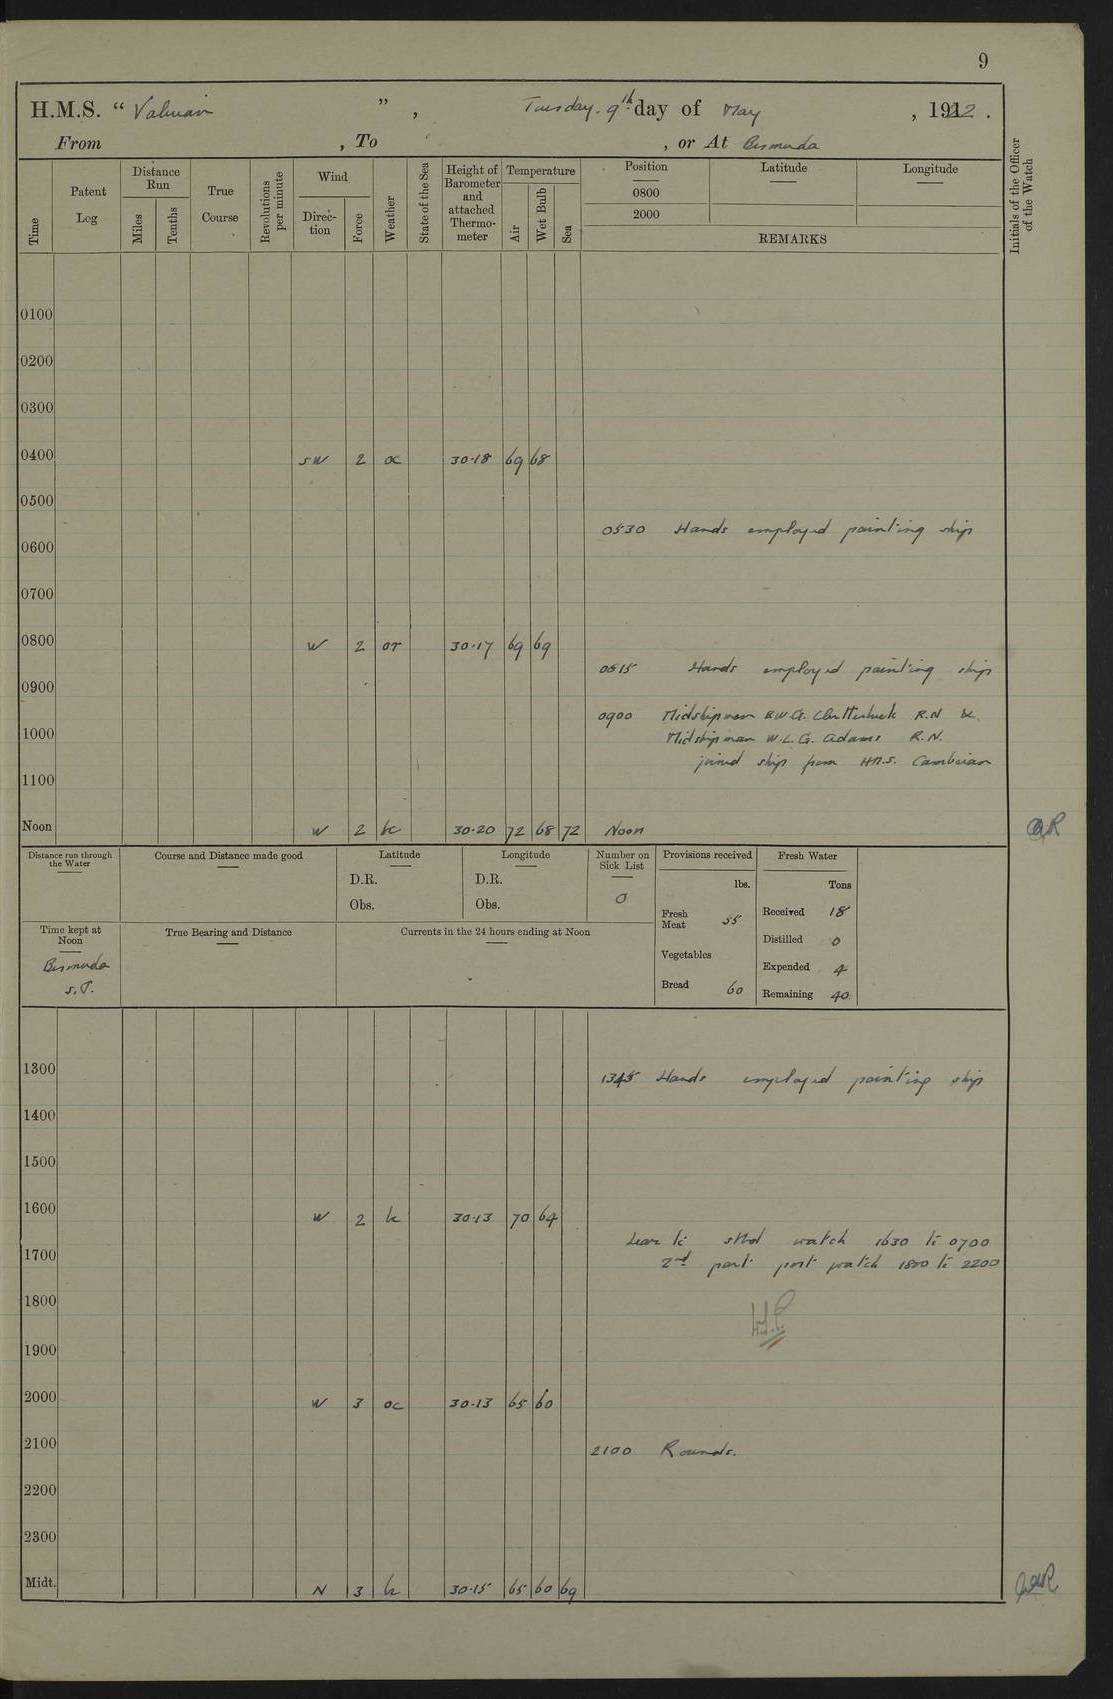 9
H.M.S. “ Valerian ” , Tuesday. 9th day of May , 1922 .
From , To , or At Bermuda
Time
Patent Log
Distance Run
Miles
Tenths
True Course
Revolutions per minute
Wind
Direc-tion
Force
Weather
State of the Sea
Height of Barometer and attached Thermo-meter
Temperature
Air
Wet Bulb
Sea
Position
0800
2000
Latitude
Longitude
REMARKS
Initials of the Officer of the Watch
0100
0200
0300
0400 SW 2 oc 30.18 69 68
0500
0530 Hands employed painting ship
0600
0700
0800 W 2 or 30.17 69 69
0815 Hands employed painting ship
0900
0900 Midshipman B.W.G. Clutterbuck R.N &
1000 Midshipman W.L.G. Adams R.N.
joined ship from H.M.S. Cambrian
1100
Noon W 2 bc 30.20 72 68 72 Noon
Distance run through the Water
Course and Distance made good
Latitude
D.R.
Obs.
Longitude
D.R.
Obs.
Number on Sick List
0
Provisions received
lbs.
Fresh Meat 55
Vegetables
Bread 60
Fresh Water
Tons
Received 18
Distilled 0
Expended 4
Remaining 40
Time kept at Noon
Bermuda
S.T.
True Bearing and Distance
Currents in the 24 hours ending at Noon
1300
1345 Hands employed painting ship
1400
1500
1600 W 2 bc 30.13 70 64
Leave to stbd watch 1630 to 0700
1700 2nd part port watch 1800 to 2200
1800
1900
2000 W 3 oc 30.13 65 60
2100
2100 Rounds.
2200
2300
Midt. N 3 bc 30.15 65 60 69